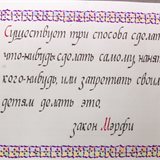 Существует три способа сделать
что-нибудь: сделать самому, нанять
кого-нибудь, или запретить своим
детям делать это.
закон Мэрфи